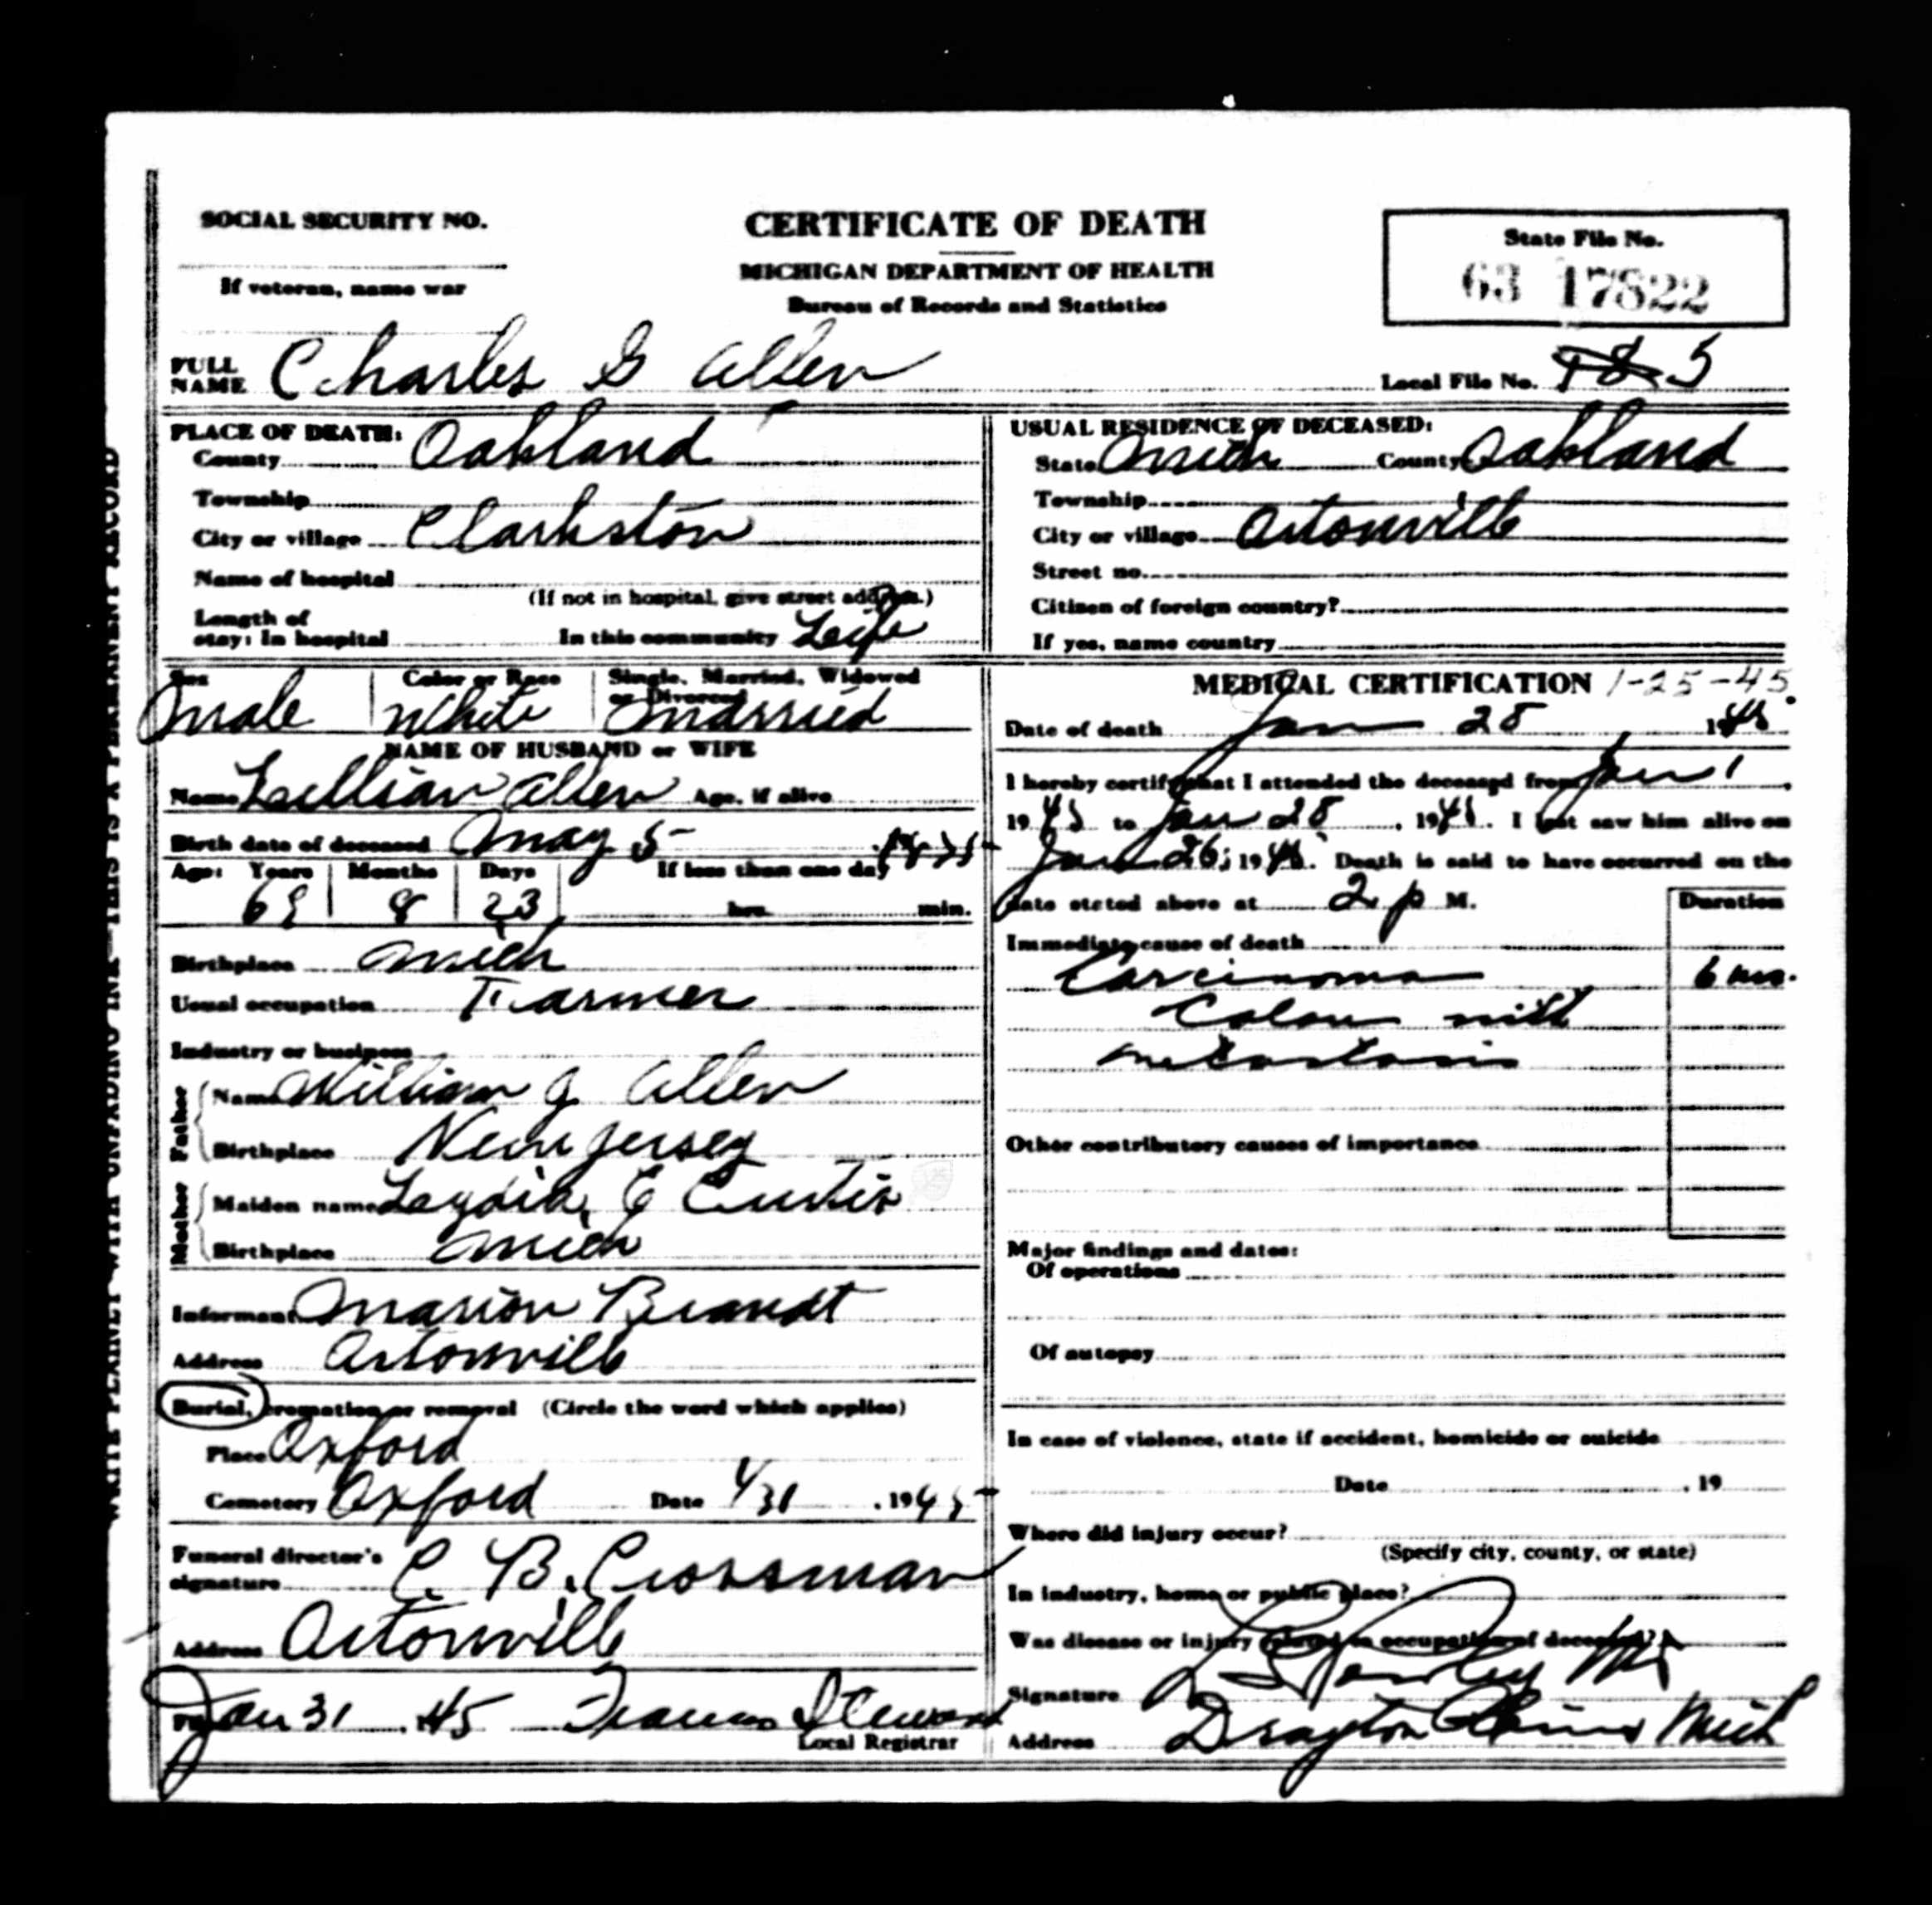 SOCIAL SECURITY NO.
If veteran, name war
CERTIFICATE OF DEATH
MICHIGAN DEPARTMENT OF HEALTH
Bureau of Records and Statistics
State File No.
63 17822
FULL NAME Charles G Allen
Local File No. 5
PLACE OF DEATH:
County Oakland
Township
City or village Clarkston
Name of hospital
(If not in hospital, give street address.)
Length of stay: In hospital In this community Life
USUAL RESIDENCE OF DECEASED:
State Mich County Oakland
Township
City or village Ortonville
Street no.
Citizen of foreign country?
If yes, name country
Sex Color or Race Single, Married, Widowed or Divorced
Male White Married
NAME OF HUSBAND or WIFE
Name Lillian Allen Age, if alive
Birth date of deceased May 5 1875
Age: Years Months Days If less than one day
69 8 23 hrs. min.
Birthplace Mich
Usual occupation Farmer
Industry or business
Father Name William J Allen
Birthplace New Jersey
Mother Maiden name Lydia E Curtis
Birthplace Mich
Informant Marion Brandt
Address Ortonville
Burial, cremation or removal (Circle the word which applies)
Place Oxford
Cemetery Oxford Date 1/31, 1945
Funeral director's signature C. B. Crossman
Address Ortonville
Jan 31 45 Frances Steward
Local Registrar
MEDICAL CERTIFICATION 1-25-45
Date of death Jan 28 1945
I hereby certify that I attended the deceased from Jan 1,
1945 to Jan 28, 1945. I last saw him alive on
Jan 26, 1945. Death is said to have occurred on the
date stated above at 2 p M.
Duration
Immediate cause of death
Carcinoma 6 mo.
Colon with
metastasis
Other contributory causes of importance
Major findings and dates:
Of operations
Of autopsy
In case of violence, state if accident, homicide or suicide
Date , 19
Where did injury occur?
(Specify city, county, or state)
In industry, home or public place?
Was disease or injury related to occupation of deceased?
Signature
Address Drayton Plains Mich
WRITE PLAINLY WITH UNFADING INK—THIS IS A PERMANENT RECORD